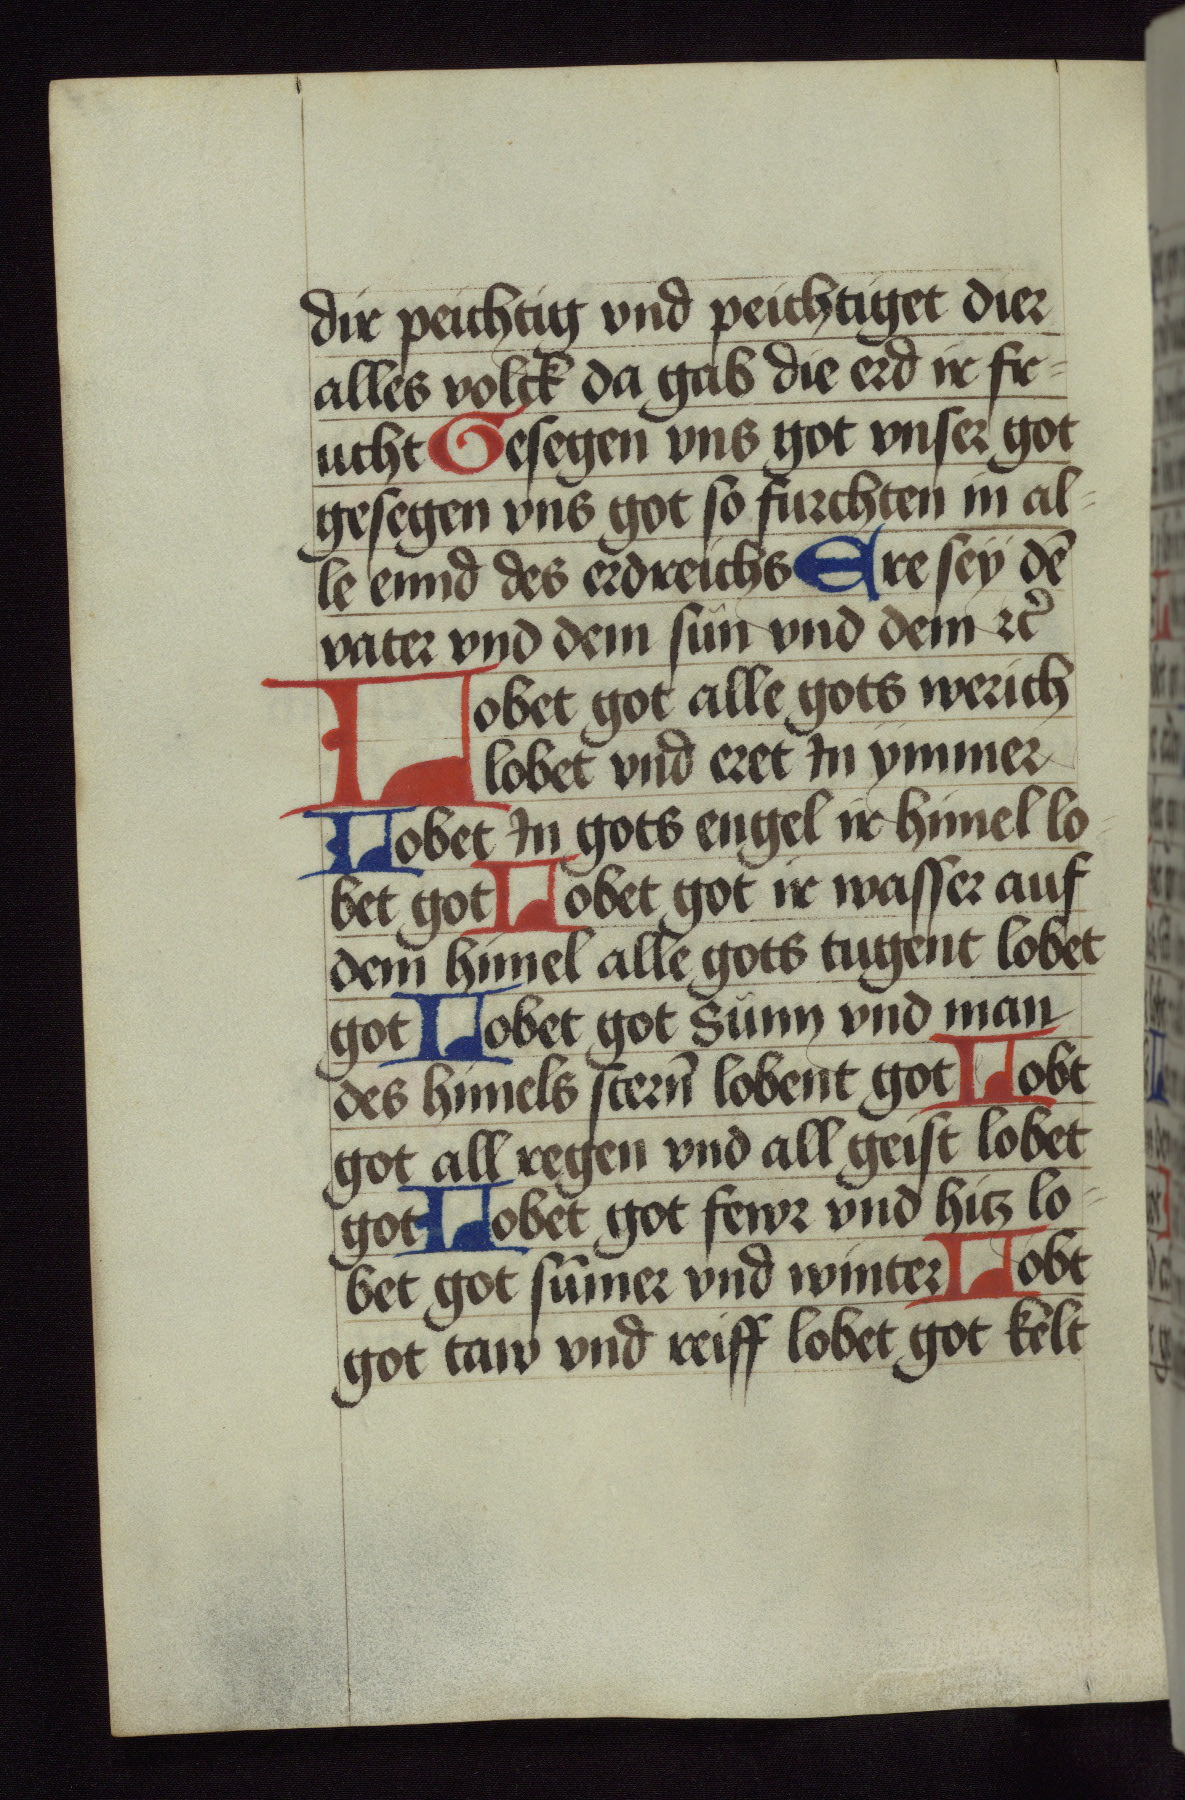 dir peichtig vnd peichtiget dier
alles volck da gab die erd ir fr-
ucht Gesegen vns got vnser got
gesegen vns got so furchten in al-
le ennd des erdreichs Ere seÿ dē
vater vnd dem sůn vnd dem rc̉
Lobet got alle gots werich
lobet vnd eret In ymmer
Lobet In gots engel ir himel lo-
bet got Lobet got ir wasser auf
dem himel alle gots tugent lobet
got Lobet got Sůnn vnd man
des himels stern̄ lobent got Lobt
got all regen vnd all geist lobet
got Lobet got fewr vnd hitz lo-
bet got sum̄er vnd winter Lobt
got taw vnd reiff lobet got kelt